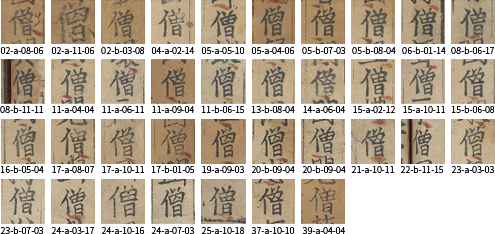 僧 僧 僧 僧 僧 僧 僧 僧 僧 僧
02-a-08-06 02-a-11-06 02-b-03-08 04-a-02-14 05-a-05-10 05-a-04-06 05-b-07-03 05-b-08-04 06-b-01-14 08-b-06-17
僧 僧 僧 僧 僧 僧 僧 僧 僧 僧
08-b-11-11 11-a-04-04 11-a-06-11 11-a-09-04 11-b-06-15 13-b-08-04 14-a-06-04 15-a-02-12 15-a-10-11 15-b-06-08
僧 僧 僧 僧 僧 僧 僧 僧 僧 僧
16-b-05-04 17-a-08-07 17-a-10-11 17-b-01-05 19-a-09-03 20-b-09-04 20-b-09-04 21-a-10-11 22-b-11-15 23-a-03-03
僧 僧 僧 僧 僧 僧 僧
23-b-07-03 24-a-03-17 24-a-10-16 24-a-07-03 25-a-10-18 37-a-10-10 39-a-04-04